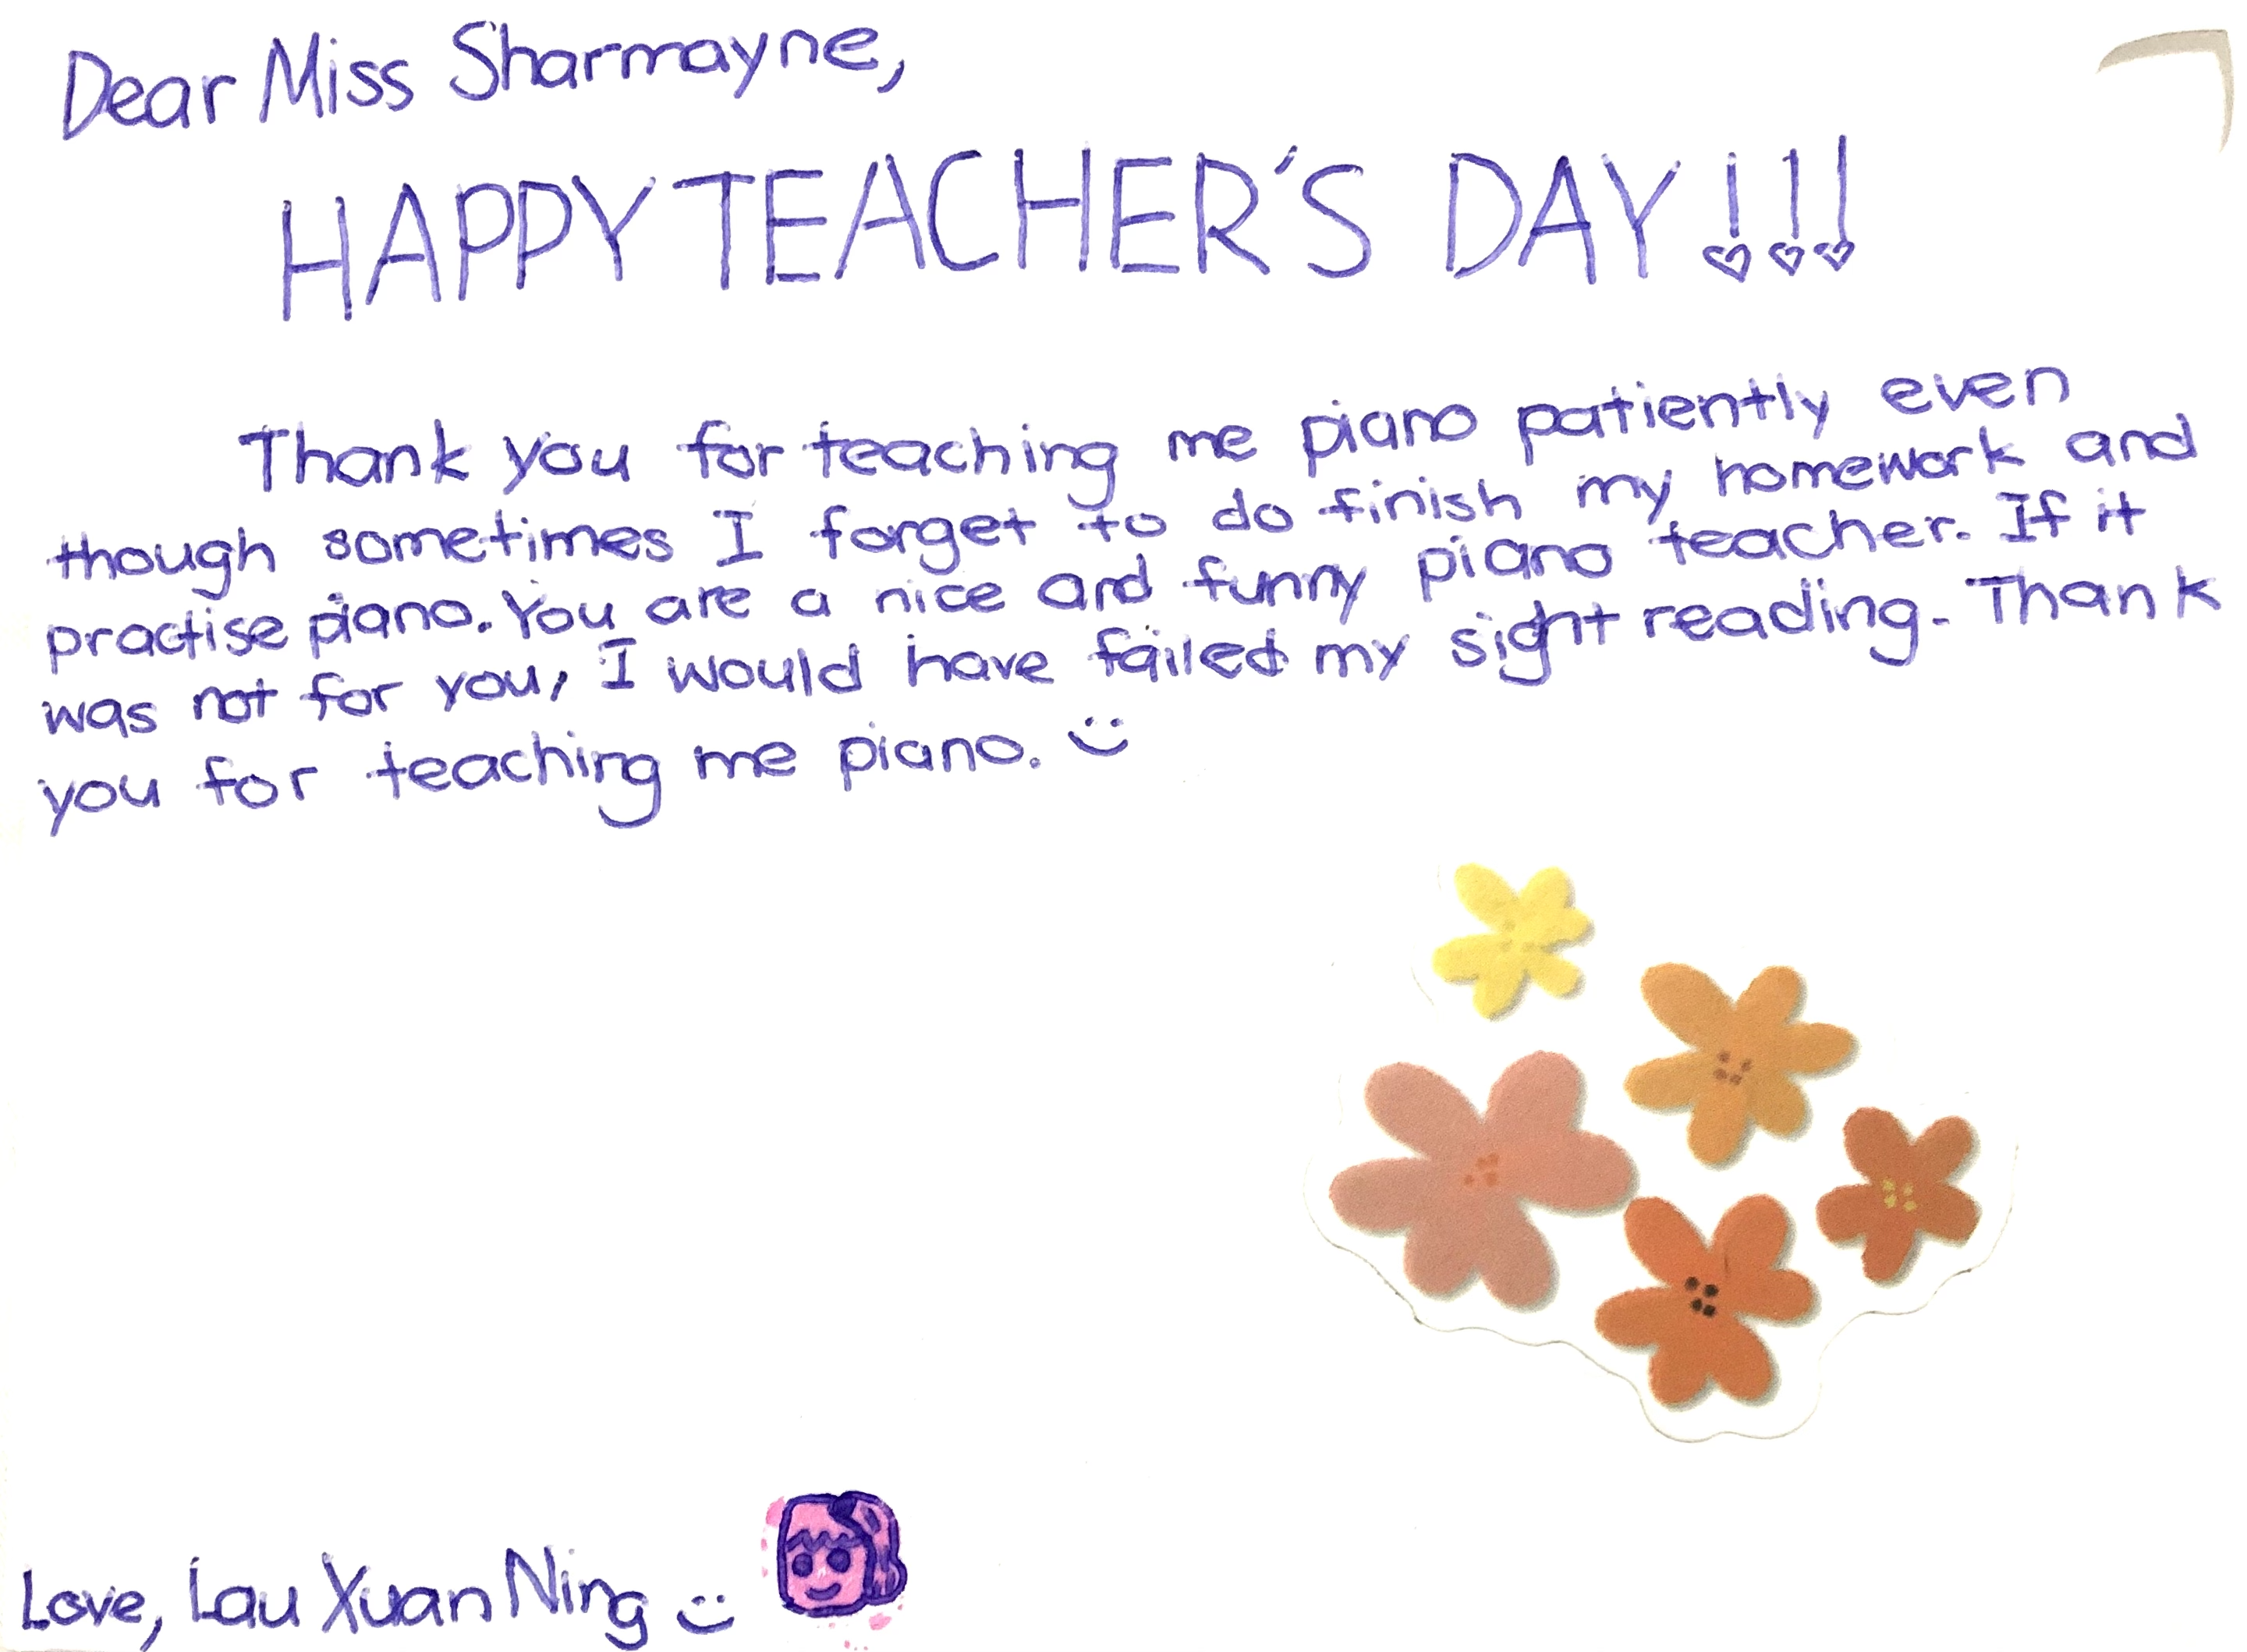 Dear Miss Sharmayne,
HAPPY TEACHER'S DAY!!!
Thank you for teaching me piano patiently even
though sometimes I forget to do finish my homework and
practise piano. You are a nice and funny piano teacher. If it
was not for you, I would have failed my sight reading. Thank
you for teaching me piano. :)
Love, Lau Xuan Ning :)